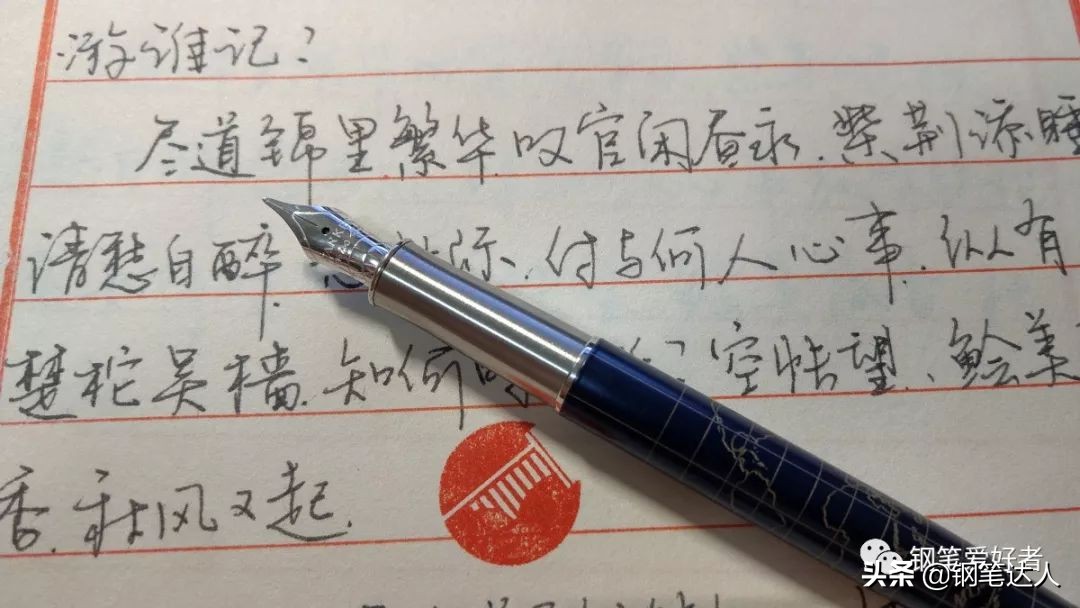 游谁记?
尽道锦里繁华.叹官闲昼永.柴荆添睡
清愁自醉.际.付与何人心事.纵有
楚柁吴樯.知何空怅望、鲙美
香.秋风又起.
钢笔爱好者
头条 @钢笔达人